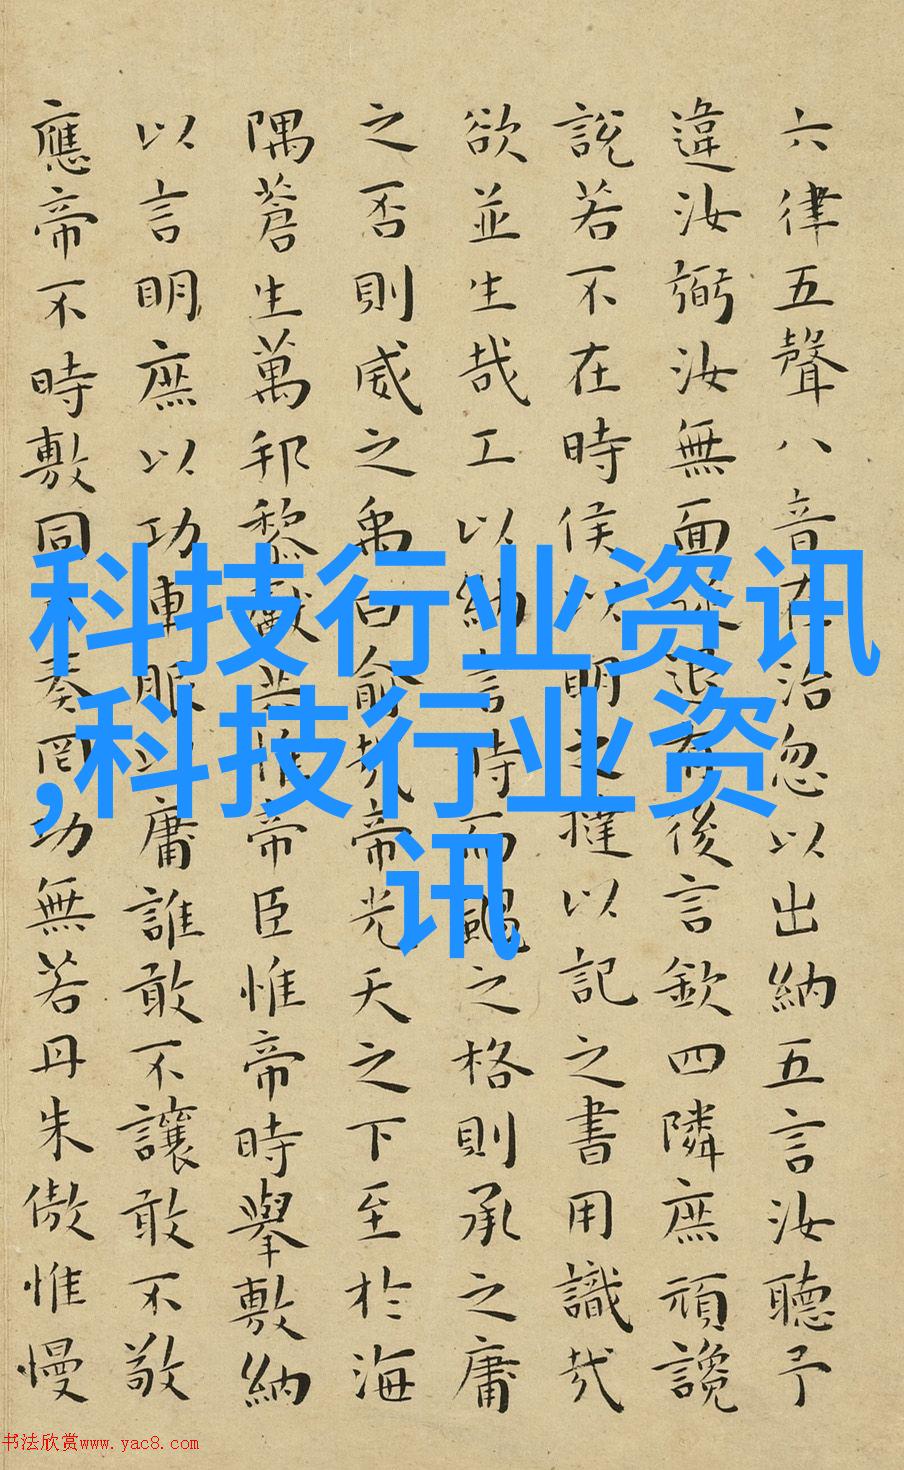 六律五聲八音在治忽以出納五言汝聽予
違汝弼汝無面退有後言欽四隣庶頑讒
說若不在時侯以明之撻以記之書用識哉
欲並生哉工以納言時而颺之格則承之庸
之否則威之禹曰俞哉帝光天之下至於海
隅蒼生萬邦黎獻共惟帝臣惟帝時舉敷納
以言明庶以功車服以庸誰敢不讓敢不敬
應帝不時敷同奏罔功無若丹朱傲惟慢
科技行业资讯
,科技行业资
讯
书法欣赏www.yac8.com